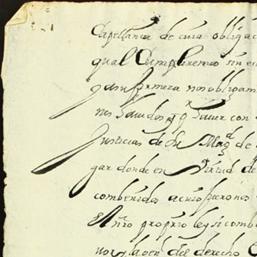 Capellania de cuia obligac
qual Cumpliremos sin es
y a su firmeza nos obligam
nos hauidos y por hauer con
Justicias de Su Magd de
gar donde en Virtud de
combenidos a cuio fuero nos
el Nro proprio ley si comb
nos la gen del derecho